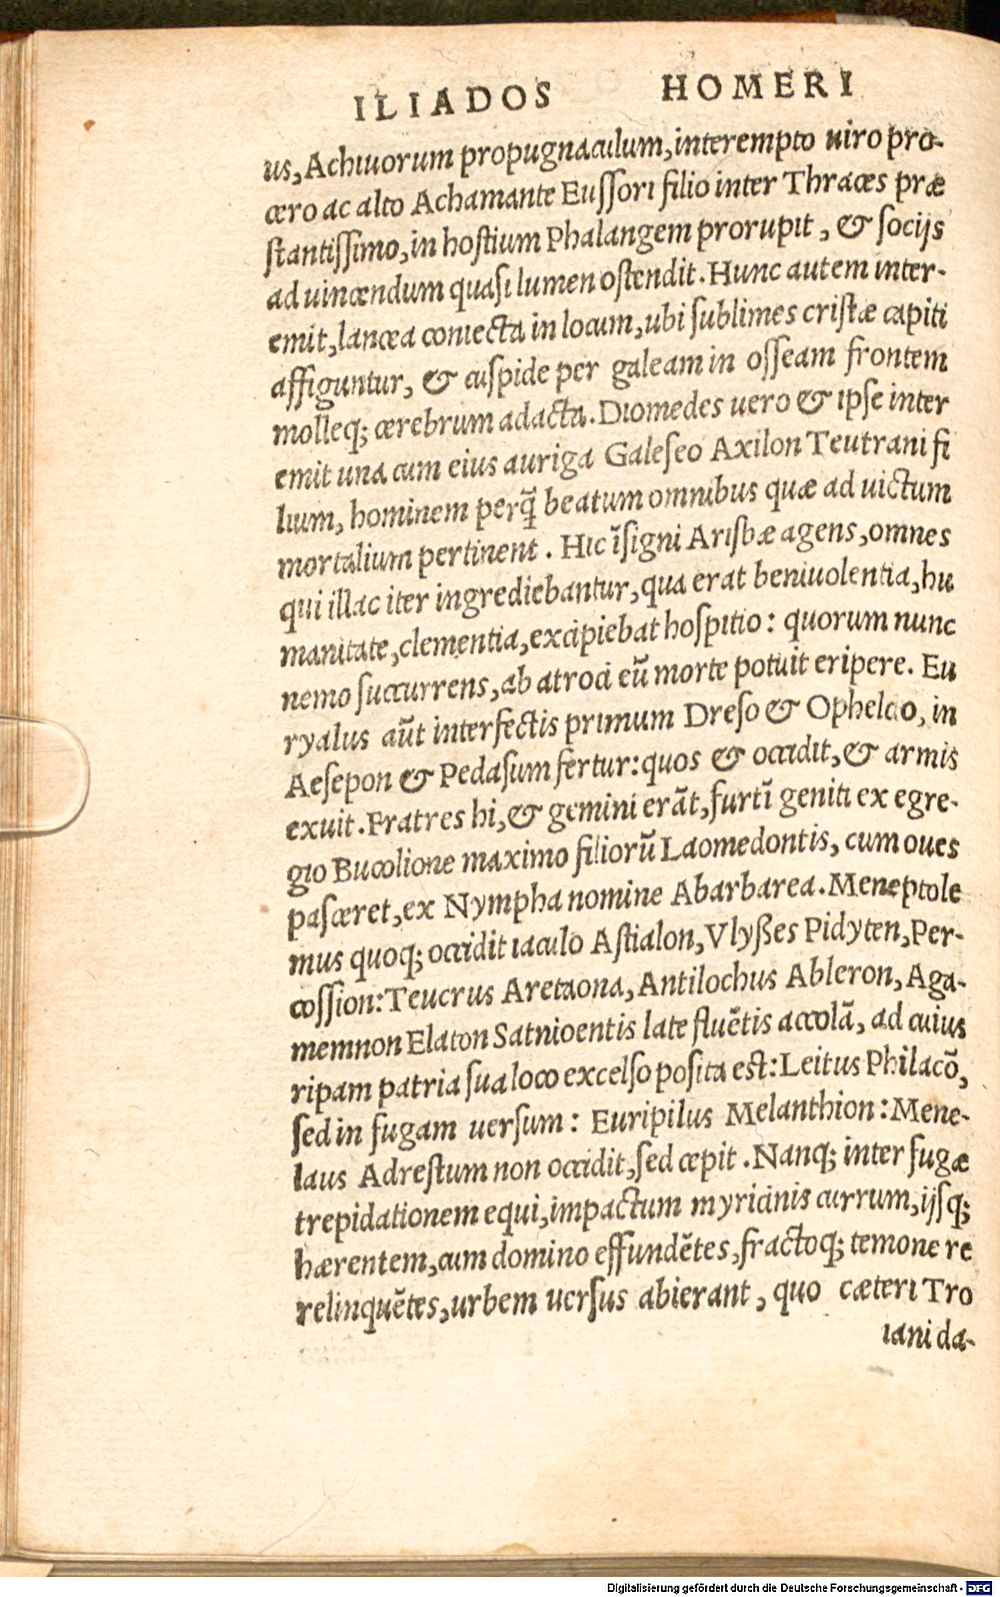 ILIADOS HOMERI
us, Achiuorum propugnaculum, interempto uiro pro-
cero ac alto Achamante Eussori filio inter Thraces præ
stantissimo, in hostium Phalangem prorupit, & socijs
ad uincendum quasi lumen ostendit. Hunc autem inter-
emit, lancea coniecta in locum, ubi sublimes cristæ capiti
affiguntur, & cuspide per galeam in osseam frontem
molleq; cerebrum adacta. Diomedes uero & ipse inter
emit una cum eius auriga Galeseo Axilon Teutrani fi
lium, hominem perq̃ beatum omnibus quæ ad uictum
mortalium pertinent. Hic ĩsigni Arisbæ agens, omnes
qui illac iter ingrediebantur, qua erat beniuolentia, hu
manitate, clementia, excipiebat hospitio: quorum nunc
nemo succurrens, ab atroci eũ morte potuit eripere. Eu
ryalus aũt interfectis primum Dreso & Opheltio, in
Aesepon & Pedasum fertur: quos & occidit, & armis
exuit. Fratres hi, & gemini erãt, furtĩ geniti ex egre-
gio Bucolione maximo filiorũ Laomedontis, cum oues
pasceret, ex Nympha nomine Abarbarea. Meneptole
mus quoq; occidit iaculo Astialon, Vlyßes Pidyten, Per-
cossion: Teucrus Aretaona, Antilochus Ableron, Aga-
memnon Elaton Satnioentis late fluẽtis accolã, ad cuius
ripam patria sua loco excelso posita est: Leitus Philacõ,
sed in fugam uersum: Euripilus Melanthion: Mene-
laus Adrestum non occidit, sed cepit. Nanq; inter fugæ
trepidationem equi, impactum myricinis currum, ijsq;
hærentem, cum domino effundẽtes, fractoq; temone re
relinquẽtes, urbem uersus abierant, quo cæteri Tro
iani da-
Digitalisierung gefördert durch die Deutsche Forschungsgemeinschaft - DFG